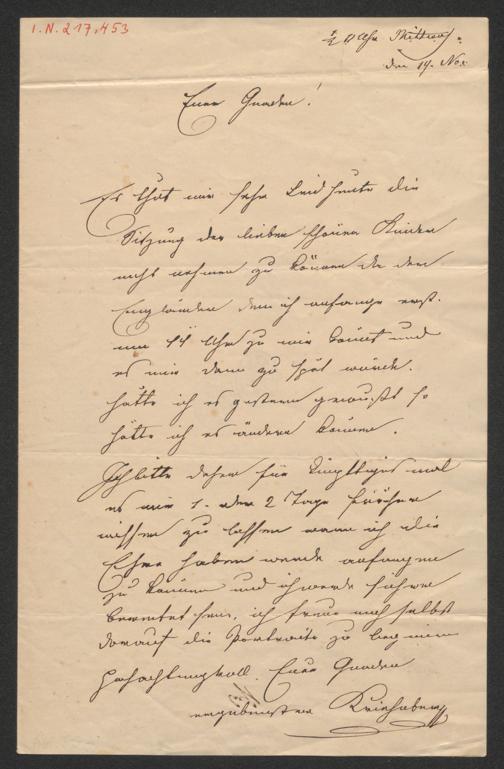 I.N. 217.453
½ 11 Uhr Mittwoch
den 14. Nov.
Euer Gnaden!
Es thut mir sehr Leid heute die
Sitzung der lieben schönen Kinder
nicht nehmen zu können da der
Engländer den ich anfange erst
um 11 Uhr zu mir kömt und
es mir dann zu spät würde.
hätte ich es gestern gewußt so
hätte ich es ändern können.
Ich bitte daher für künftiges mal
es mir 1. oder 2 Tage früher
wissen zu lassen wann ich die
Ehre haben werde anfangen
zu können und ich werde sicher
bereitet sein, ich freue mich selbst
darauf die Portraite zu beginnen
Hochachtungsvoll. Euer Gnaden
ergebenster Kriehuber